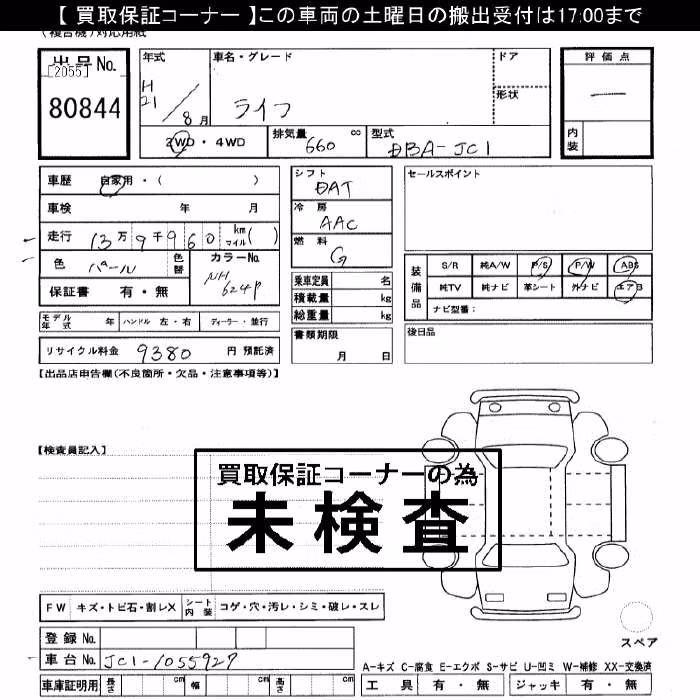 【 買取保証コーナー 】この車両の土曜日の搬出受付は17:00まで
出品No.
[2055]
80844
年式
H
21
8 月
車名・グレード
ライフ
ドア
形状
評価点
―
内装
2WD ・ 4WD
排気量
660 cc
型式
DBA-JC1
車歴 自家用・( )
車検 年 月
走行 13万9千960 km マイル( )
色 パール 色替
カラーNo. NH 624P
保証書 有・無
シフト
DAT
冷房
AAC
燃料
G
乗車定員 名
積載量 kg
総重量 kg
セールスポイント
装備品
S/R 純A/W P/S P/W ABS
純TV 純ナビ 革シート 外ナビ エアB
ナビ型番:
モデル年式 年 ハンドル 左・右 ディーラー・並行
書類期限
月 日
後日品
リサイクル料金 9380 円 預託済
【出品店申告欄(不良箇所・欠品・注意事項等)】
【検査員記入】
買取保証コーナーの為
未検査
FW キズ・トビ石・割レX シート内装 コゲ・穴・汚レ・シミ・破レ・スレ
登録No.
車台No. JC1-1055927
スペア
A-キズ C-腐食 E-エクボ S-サビ U-凹ミ W-補修 XX-交換済
車庫証明用 長さ cm 幅 cm 高さ cm
工具 有・無 ジャッキ 有・無